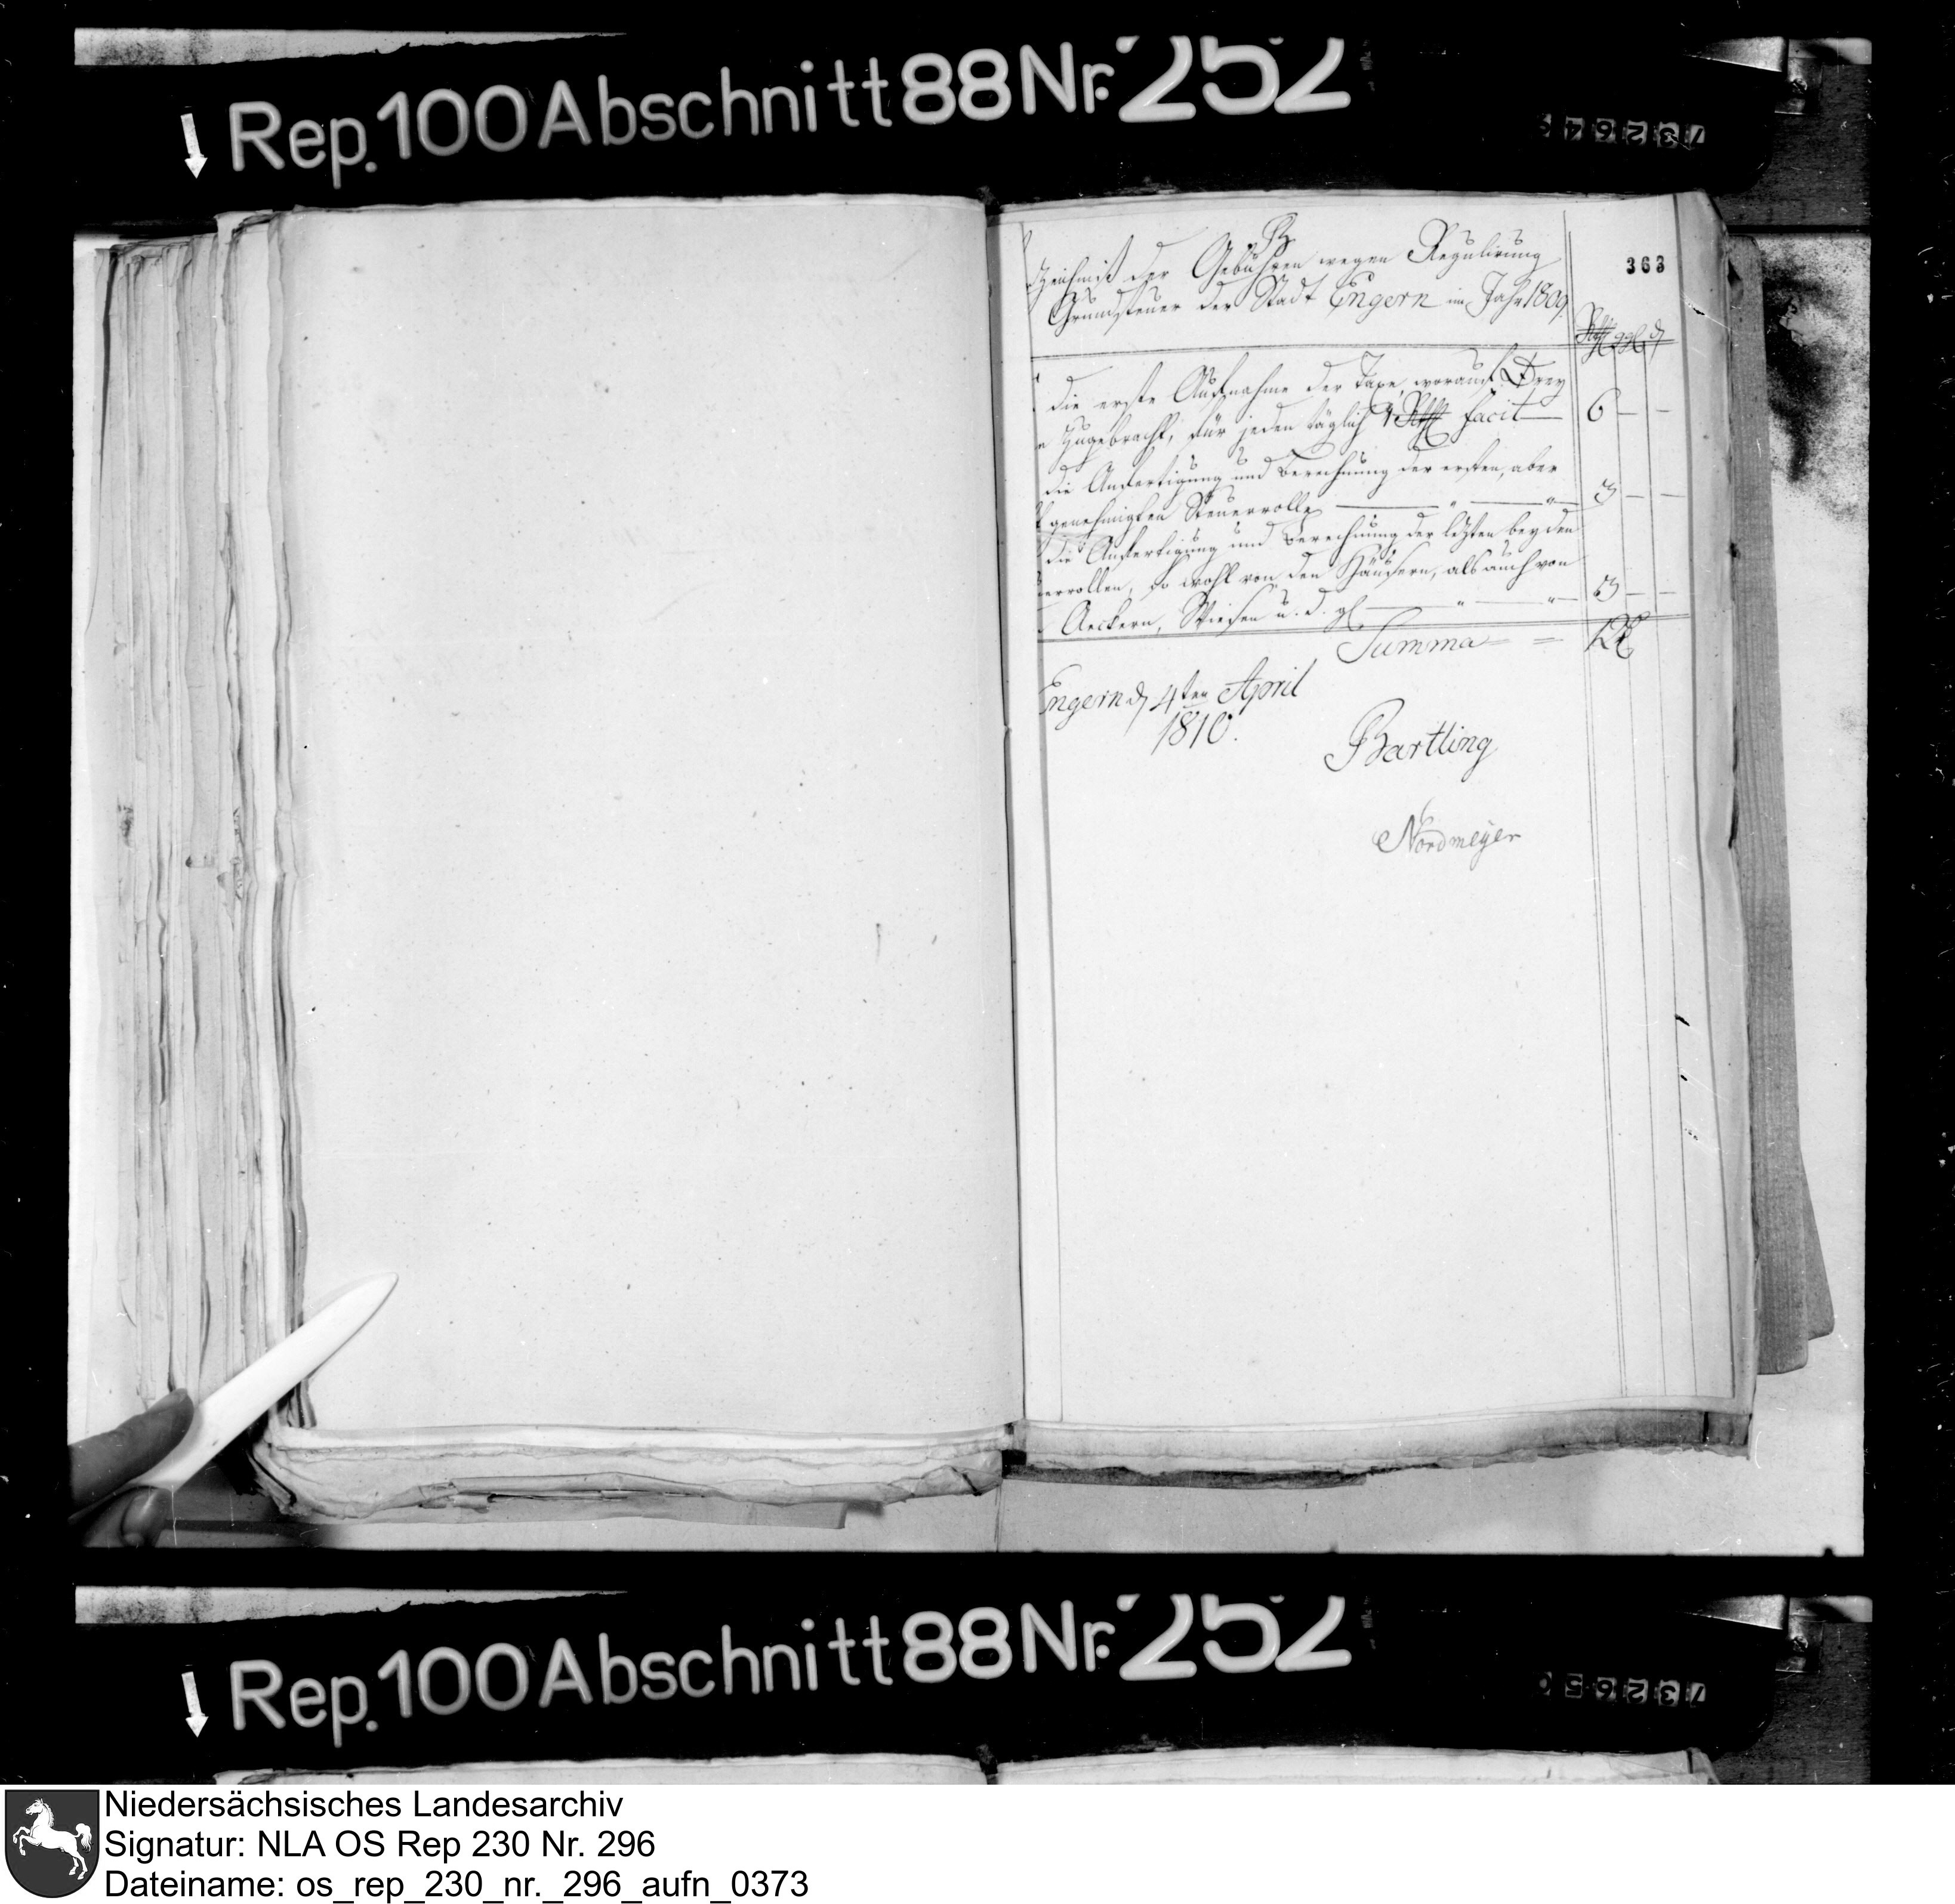 Rep. 100 Abschnitt 88 Nr. 252
73264
363
B
zeichniß der Gebühren wegen Regulirung
Grundsteuer der Stadt Engern im Jahr 1809.
Rthlr ggl d
die erste Aufnahme der Taxe, worauf Drey
n zugebracht, für jeden täglich facit — 6 — —
die Anfertigung und Berechnung der ersten, aber
t genehmigten Steuerrolle — " — " — 3 — —
die Anfertigung und Berechnung der letzten beyden
uerrollen, so wohl von den Häusern, als auch von
Aeckern, Wiesen u. d. gl. — " — " — 3 — —
Summa = 12
Engern d 4ten April
1810.
Bartling
Nordmeyer
Rep. 100 Abschnitt 88 Nr. 252
73265
Niedersächsisches Landesarchiv
Signatur: NLA OS Rep 230 Nr. 296
Dateiname: os_rep_230_nr._296_aufn_0373